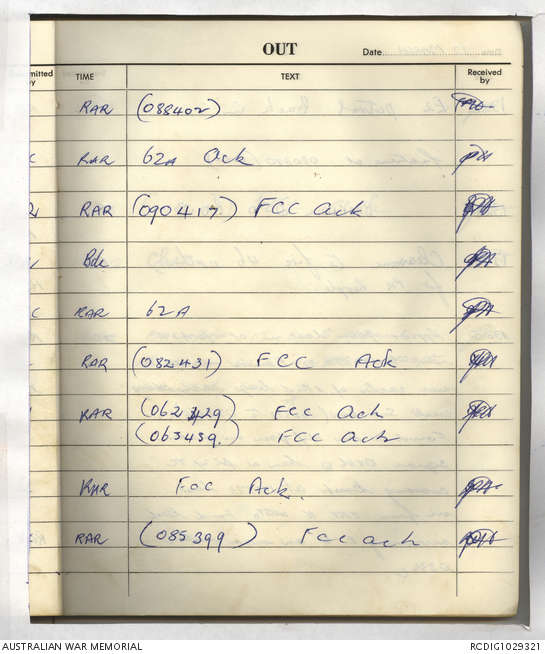 OUT Date
mitted by TIME TEXT Received by
RAR (088402)
RAR 62A Ack
RAR (090417) FCC Ack
Bde
RAR 62A
RAR (082431) FCC Ack
RAR (062429) FCC Ack
(063439) FCC Ack
RAR FCC Ack.
RAR (085399) FCC ack
AUSTRALIAN WAR MEMORIAL RCDIG1029321